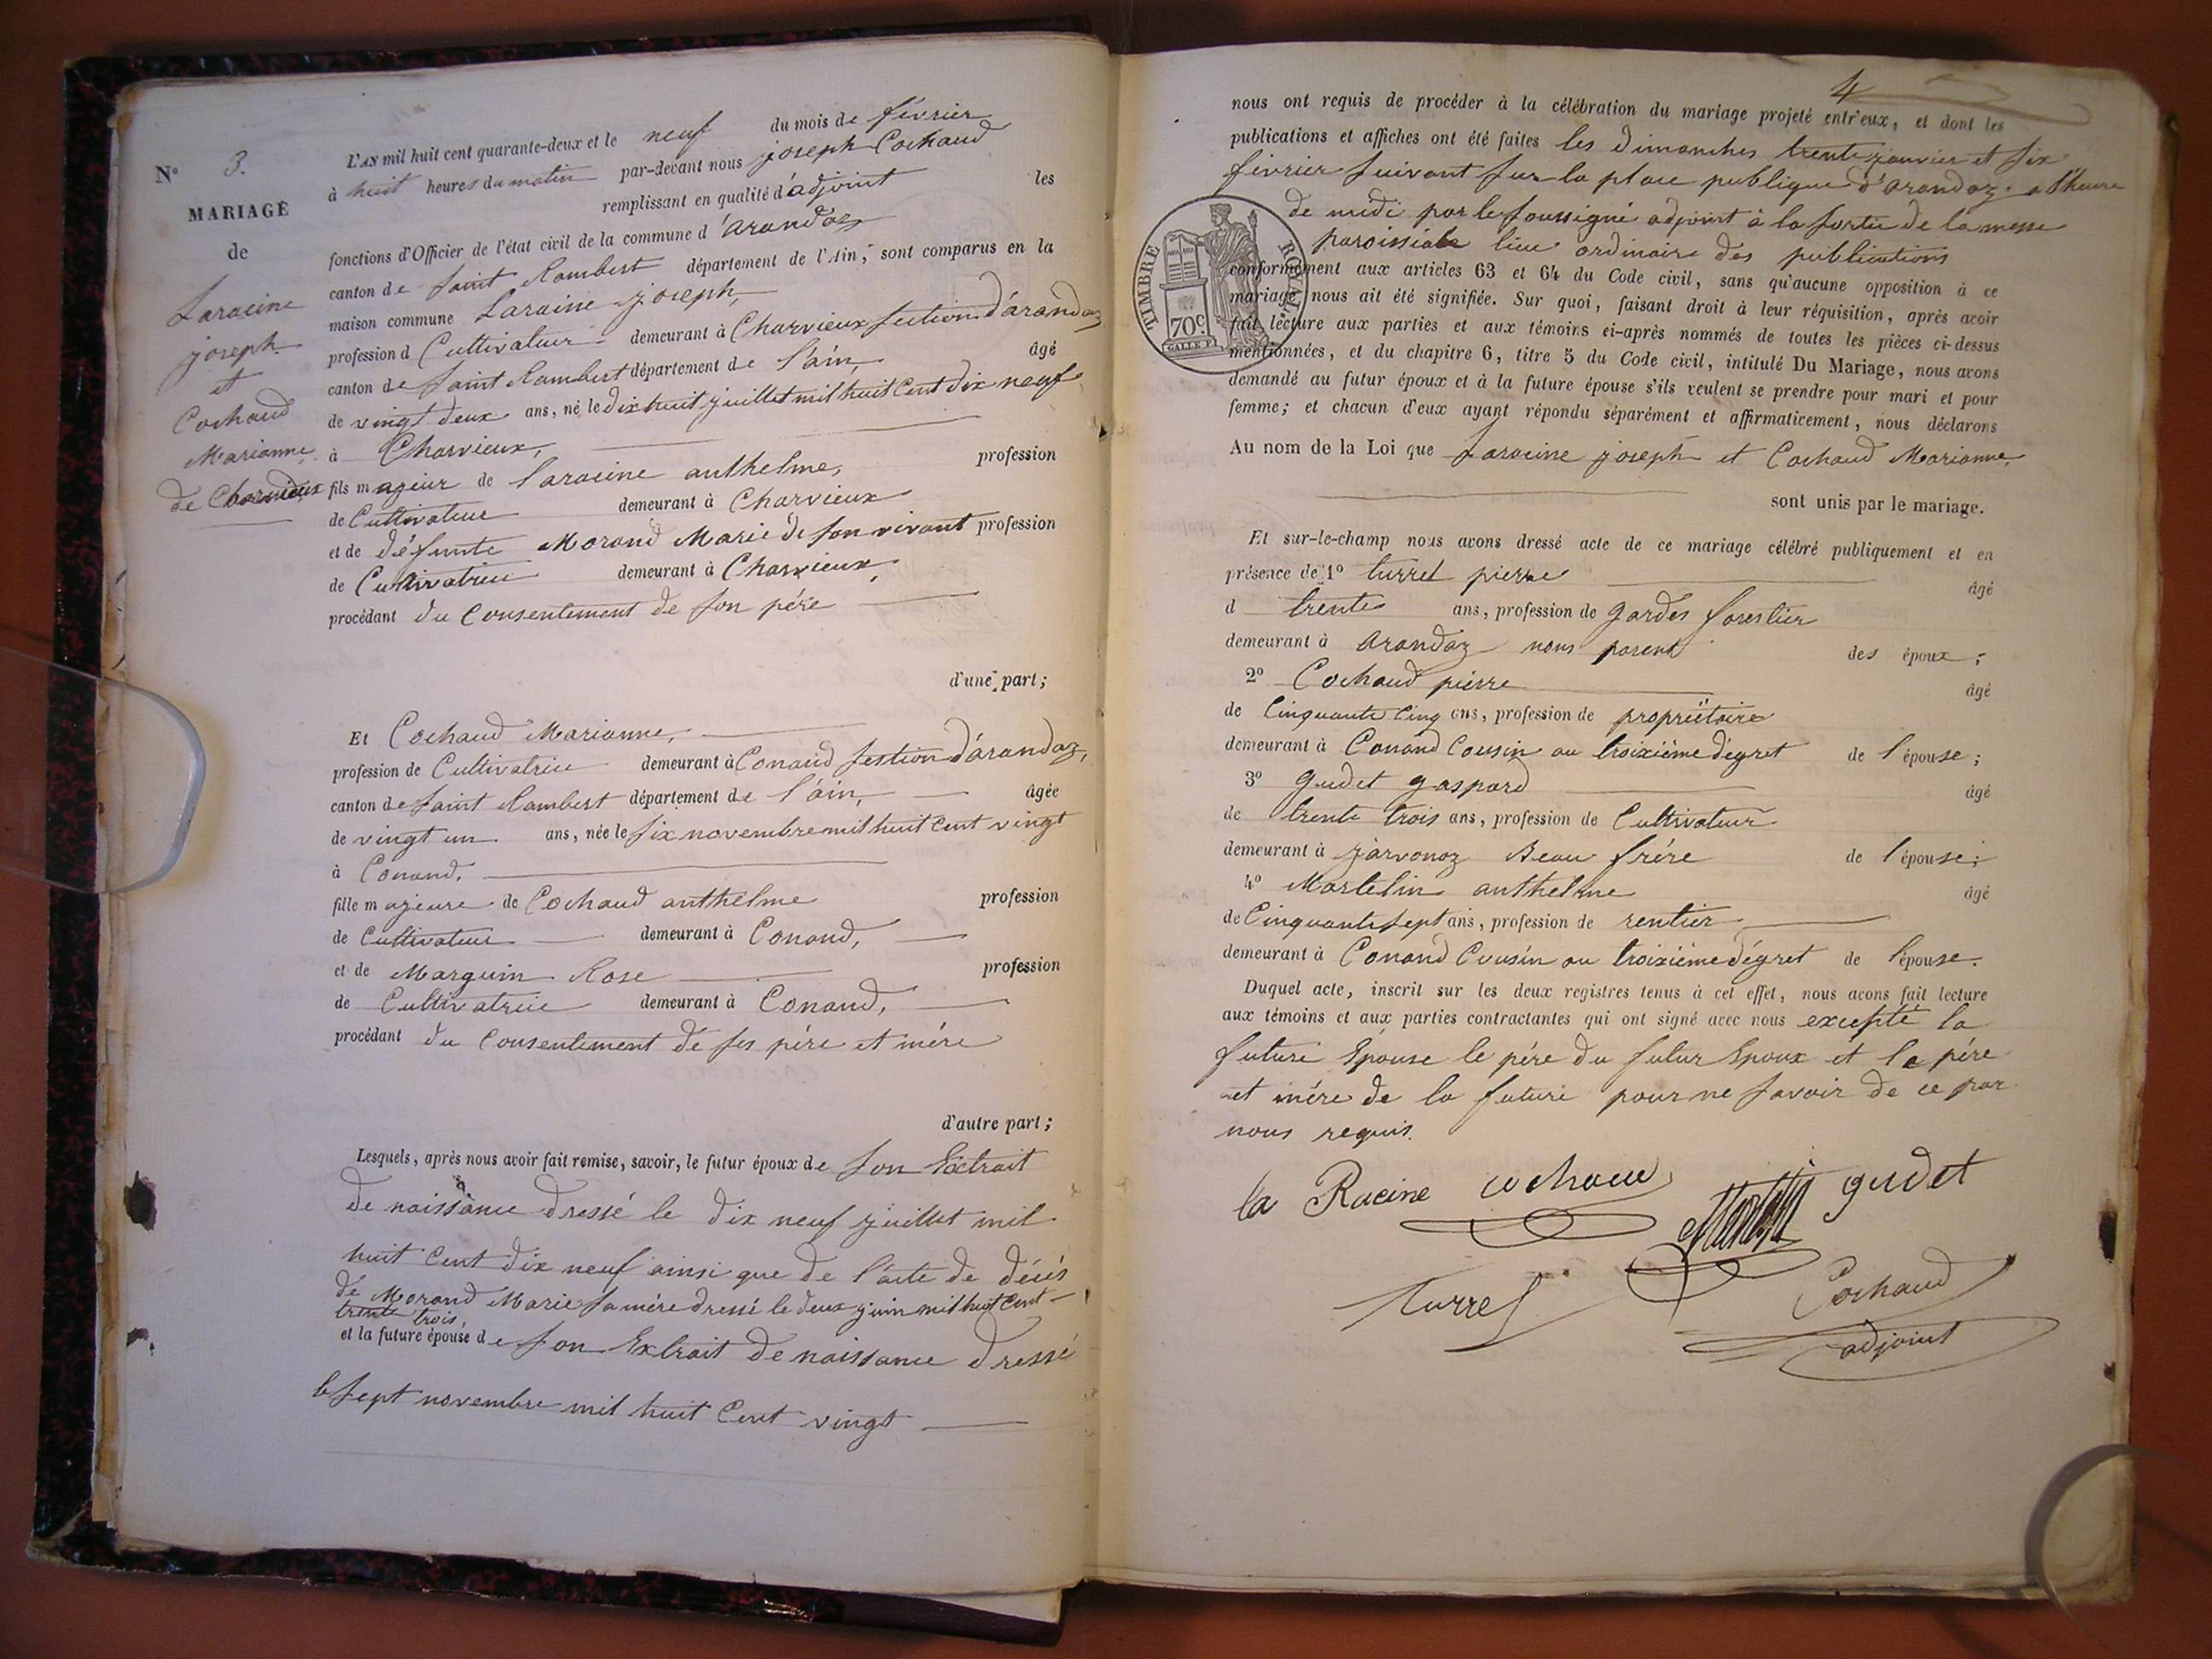 N° 3.
MARIAGE
de
Laracine
joseph
et
Cochaud
Marianne
de Charvieux
L'AN mil huit cent quarante-deux et le neuf du mois de février
à huit heures du matin par-devant nous joseph Cochaud
remplissant en qualité d'adjoint les
fonctions d'Officier de l'état civil de la commune d'arandaz
canton de saint Rambert département de l'Ain, sont comparus en la
maison commune Laraine joseph,
profession d Cultivateur demeurant à Charvieux section d'arandaz
canton de saint Rambert département de l'ain, âgé
de vingt deux ans, né le dix huit juillet mil huit Cent dix neuf
à Charvieux,
fils majeur de laracine anthelme, profession
de Cultivateur demeurant à Charvieux
et de défunte Morand Marie de son vivant profession
de Cultivatrice demeurant à Charvieux,
procédant du Consentement de son pére
d'une part;
Et Cochaud Marianne,
profession de Cultivatrice demeurant à Conand section d'arandaz,
canton de saint Rambert département de l'ain, âgée
de vingt un ans, née le six novembre mil huit Cent vingt
à Conand,
fille majeure de Cochaud anthelme profession
de Cultivateur demeurant à Conand,
et de Marguin Rose profession
de Cultivatrice demeurant à Conand,
procédant du Consentement de ses pére et mére
d'autre part;
Lesquels, après nous avoir fait remise, savoir, le futur époux de son Extrait
de naissance dressé le dix neuf juillet mil
huit Cent dix neuf ainsi que de l'acte de décés
de Morand Marie sa mére dressé le deux juin mil huit Cent
trente trois,
et la future épouse de son Extrait de naissance dressé
le sept novembre mil huit Cent vingt
4
nous ont requis de procéder à la célébration du mariage projeté entr'eux, et dont les
publications et affiches ont été faites les dimanches trente janvier et six
février suivant sur la place publique d'arandaz a l'heure
de midi par le soussigné adjoint à la sortie de la messe
paroissiale lieu ordinaire des publications
conformément aux articles 63 et 64 du Code civil, sans qu'aucune opposition à ce
mariage nous ait été signifiée. Sur quoi, faisant droit à leur réquisition, après avoir
fait lecture aux parties et aux témoins ci-après nommés de toutes les pièces ci-dessus
mentionnées, et du chapitre 6, titre 5 du Code civil, intitulé Du Mariage, nous avons
demandé au futur époux et à la future épouse s'ils veulent se prendre pour mari et pour
femme; et chacun d'eux ayant répondu séparément et affirmativement, nous déclarons
Au nom de la Loi que Laracine joseph et Cochaud Marianne,
sont unis par le mariage.
TIMBRE ROYAL
70c
GALLE F.
Et sur-le-champ nous avons dressé acte de ce mariage célébré publiquement et en
présence de 1° turrel pierre âgé
d trente ans, profession de gardes forestier
demeurant à arandaz nons parent des époux;
2° Cochaud pierre âgé
de Cinquante Cinq ans, profession de propriétaire
demeurant à Conand Cousin au troixiéme dégret de l'épouse;
3° gudet gaspard âgé
de trente trois ans, profession de Cultivateur
demeurant à jarvonoz Beau frére de l'épouse;
4° Martelin anthelme âgé
de Cinquante sept ans, profession de rentier
demeurant à Conand Cousin au troixiéme dégret de l'épouse.
Duquel acte, inscrit sur les deux registres tenus à cet effet, nous avons fait lecture
aux témoins et aux parties contractantes qui ont signé avec nous excepté la
future Epouse le pére du futur Epoux et le pére
et mére de la future pour ne savoir de ce par
nous requis.
la Racine cochaud gudet
Turrel Cochaud
adjoint